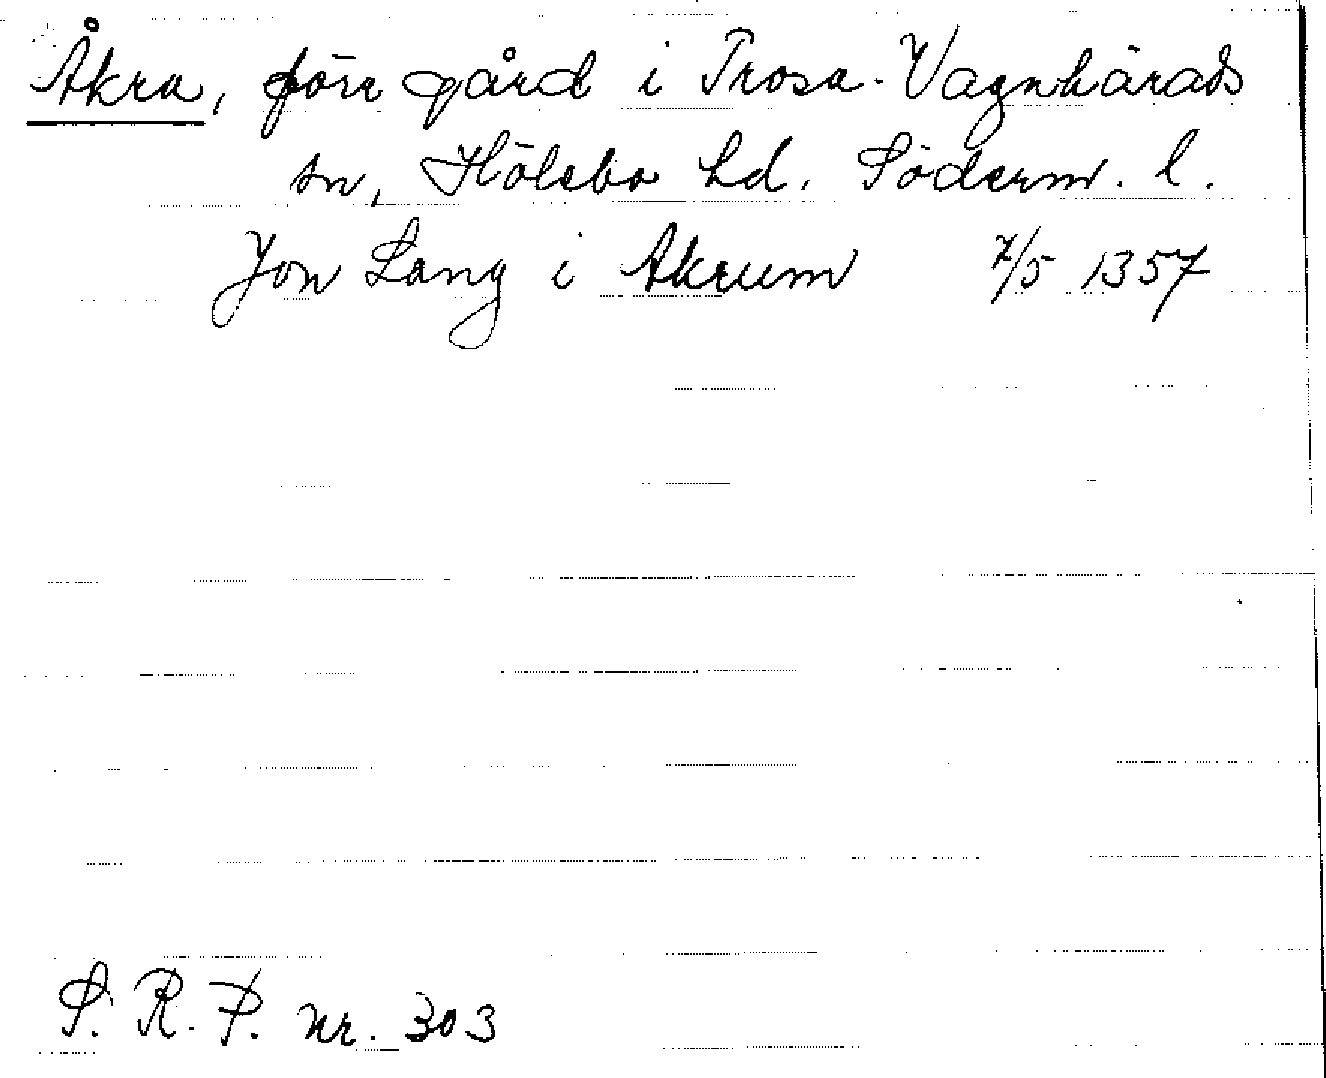 Åkra, förr gård i Trosa-Vagnhärads
sn, Hölebo hd. Söderm. l.
Jon Lang i Akrum 7/5 1357
S. R. P. nr. 303